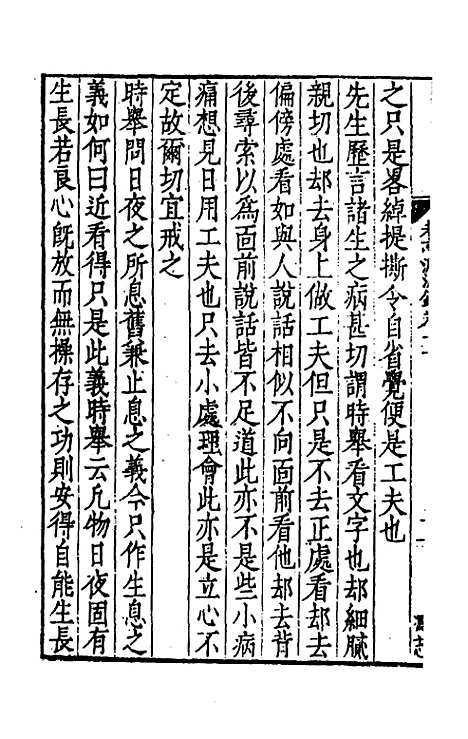 之只是畧綽提撕令自省覺便是工夫也
先生歷言諸生之病甚切謂時舉看文字也却細膩
親切也却去身上做工夫但只是不去正處看却去
偏傍處看如與人說話相似不向面前看他却去背
後尋索以爲面前說話皆不足道此亦不是些小病
痛想見日用工夫也只去小處理會此亦是立心不
定故爾切宜戒之
時舉問日夜之所息舊兼止息之義今只作生息之
義如何曰近看得只是此義時舉云凡物日夜固有
生長若良心既放而無操存之功則安得自能生長